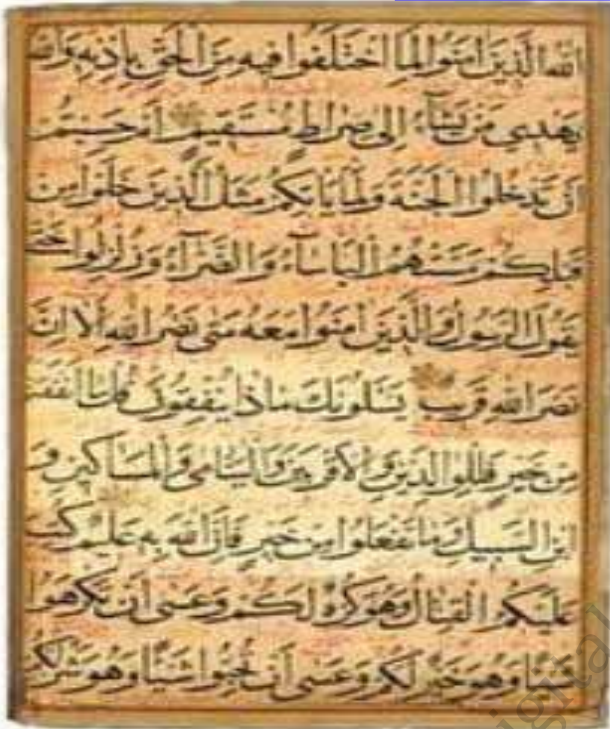 الله الذين امنوا لما اختلفوا فيه من الحق باذنه والله
يهدي من يشاء الى صراط مستقيم ام حسبتم
ان تدخلوا الجنة ولما ياتكم مثل الذين خلوا من
قبلكم مستهم الباساء والضراء وزلزلوا حتى
يقول الرسول والذين امنوا معه متى نصر الله الا ان
نصر الله قريب يسئلونك ماذا ينفقون قل ما انفقتم
من خير فللوالدين والاقربين واليتامى والمساكين و
ابن السبيل وما تفعلوا من خير فان الله به عليم كتب
عليكم القتال وهو كره لكم وعسى ان تكرهوا
شيئا وهو خير لكم وعسى ان تحبوا شيئا وهو شر لكم